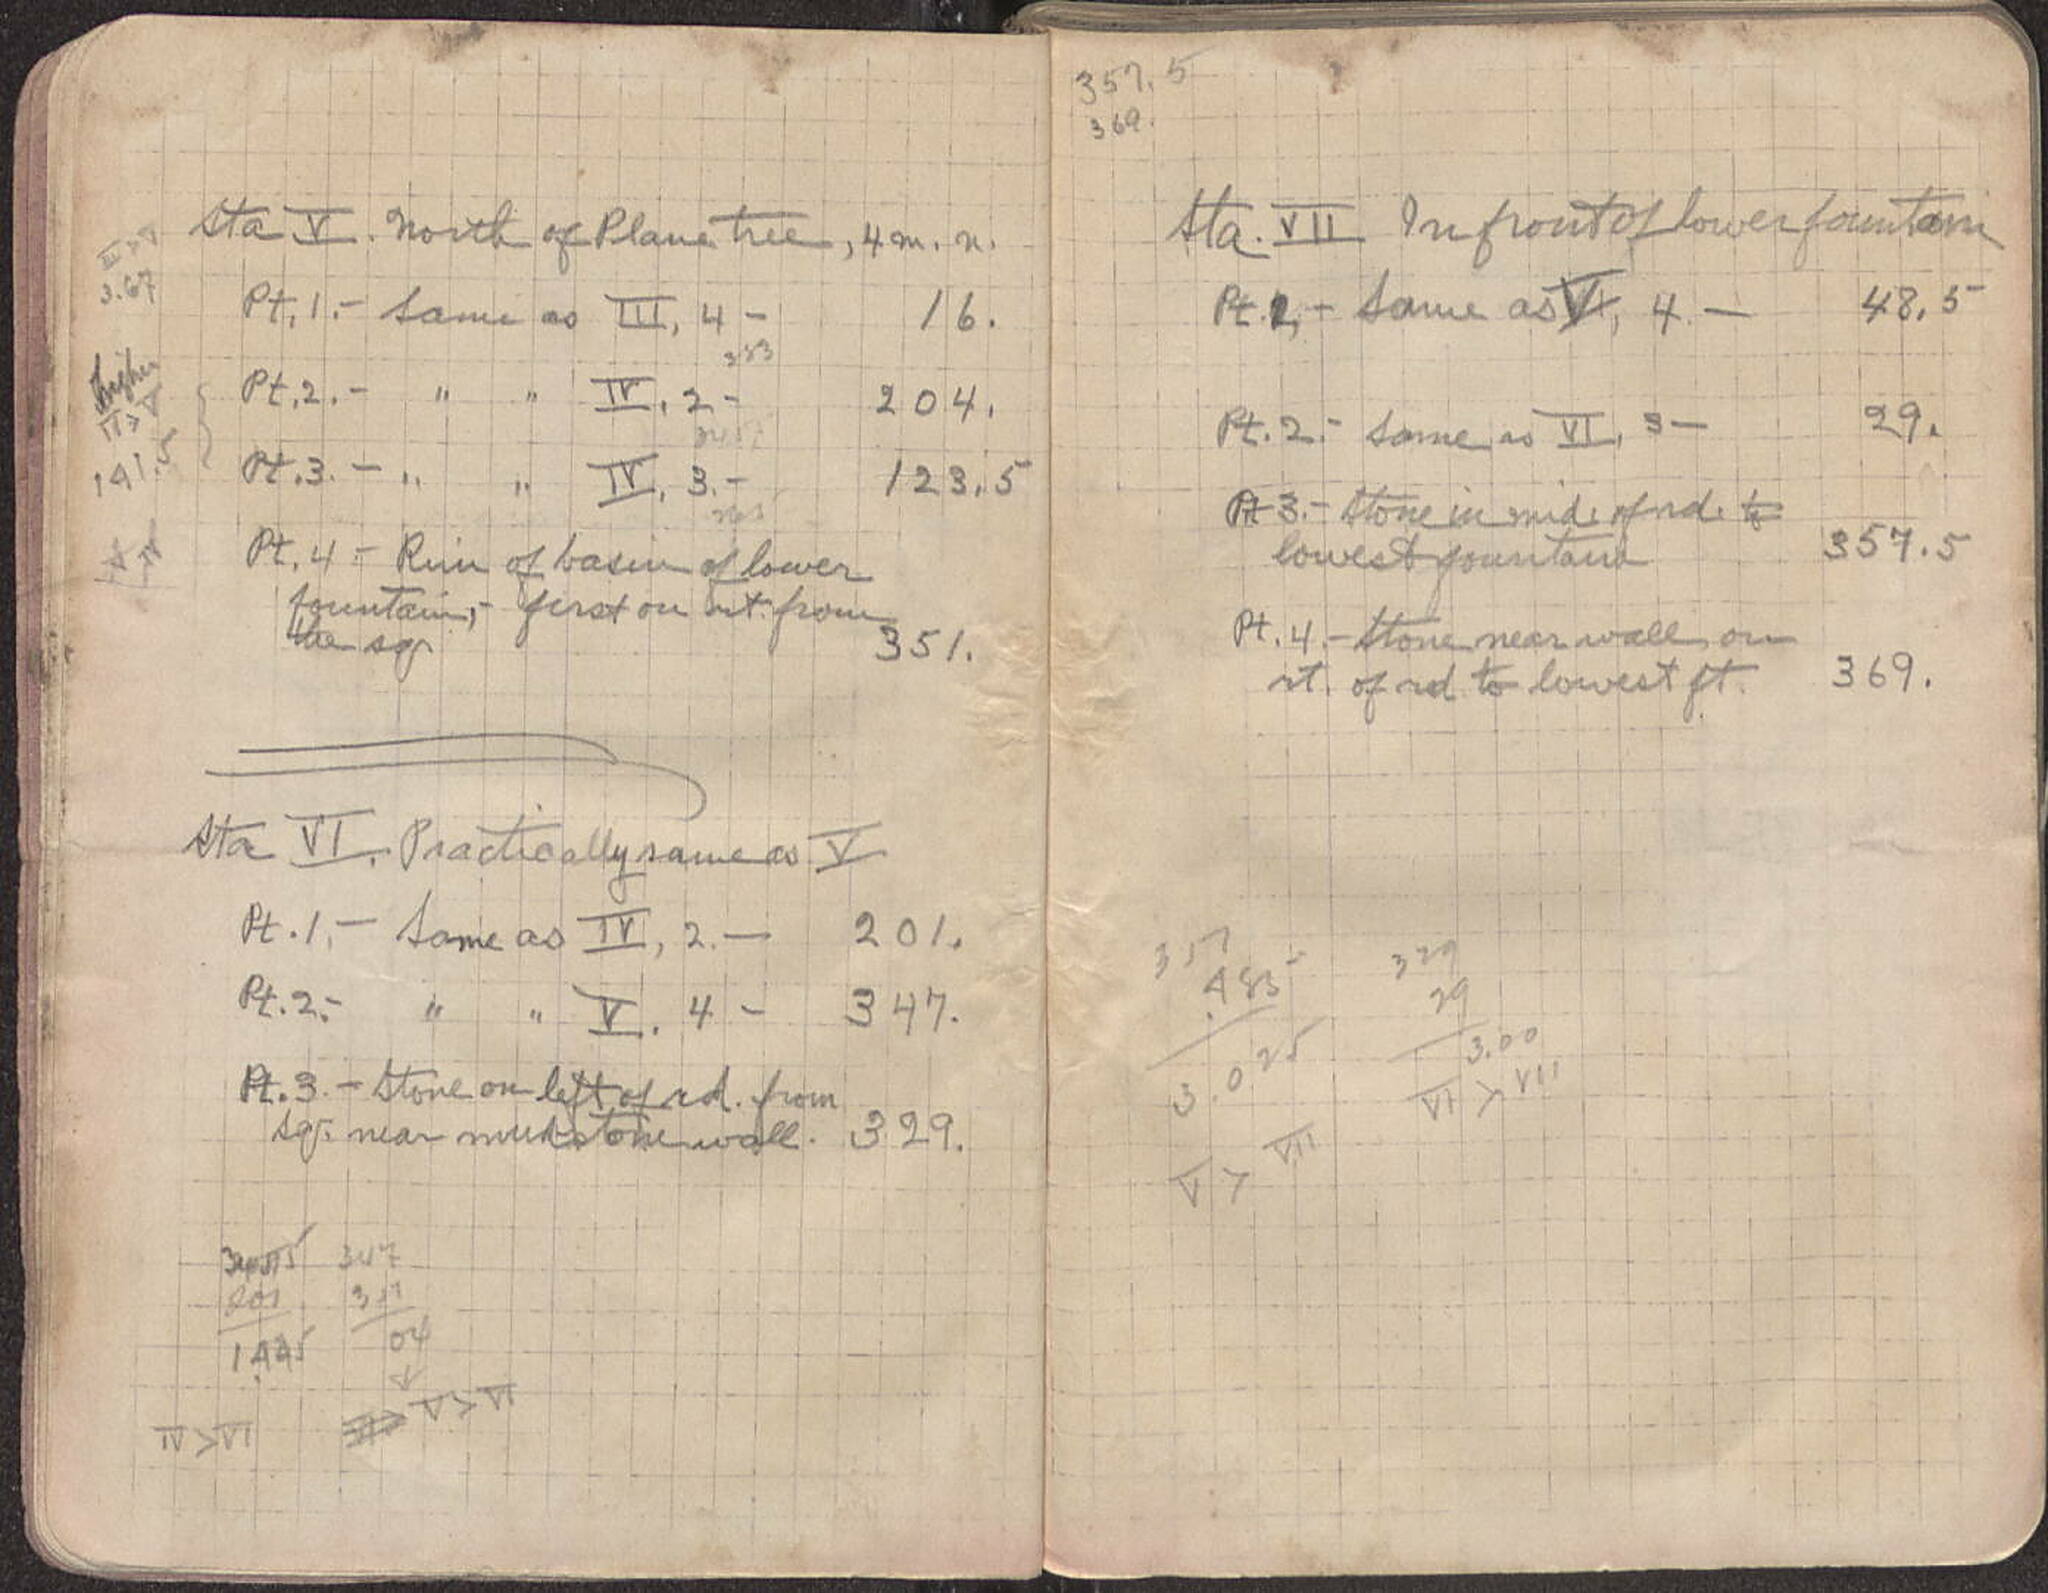 Sta V. North of Plane tree, 4 m. n.
III > V
3.67
Pt. 1. - Same as III, 4 - 16.
383
higher
Pt. 2. - " " IV, 2 - 204.
141.5
Pt. 3. - " " IV, 3. - 123.5
Pt. 4 - Rim of basin of lower
fountain, - first on rt. from
the sq. 351.
Sta VI. Practically same as V
Pt. 1. - Same as IV, 2. - 201.
Pt. 2. - " " V. 4 - 347.
Pt. 3. - Stone on left of rd. from
sq. near stone wall. 329.
347
201
04
IV > VI
V > VI
357.5
369.
Sta. VII In front of lower fountain
Pt. 1, - Same as V, 4 - 48.5
Pt. 2. - Same as VI, 3 - 29.
Pt 3. - Stone in mid. of rd. to
lowest fountain 357.5
Pt. 4. - Stone near wall on
rt. of rd to lowest ft. 369.
357 329
.485 29
3.025 3.00
VI > VII
V > VII